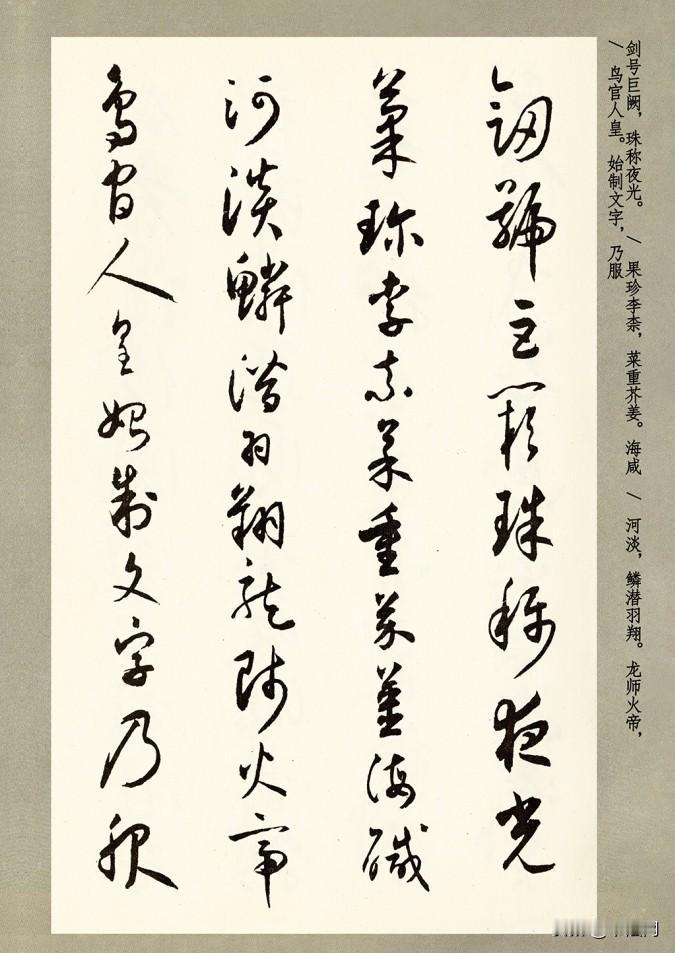 剑号巨阙，珠称夜光。\ 果珍李柰，菜重芥姜。海咸 \ 河淡，鳞潜羽翔。龙师火帝，
\ 鸟官人皇。始制文字，乃服
劒號巨闕珠稱夜光
菓珎李柰菜重芥薑海醎
河淡鱗潛羽翔龍師火帝
鳥官人皇始制文字乃服